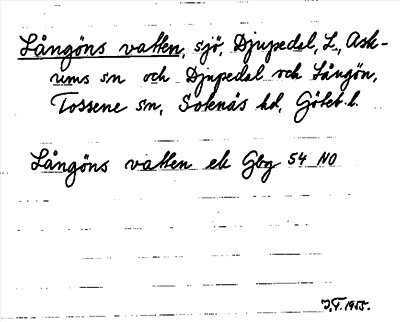 Långöns vatten, sjö, Djupedal, L., Ask-
ums sn och Djupedal och Långön,
Tossene sn, Sotenäs hd, Göteb. l.
Långöns vatten ek Gbg 54 NO
J.F. 1955.